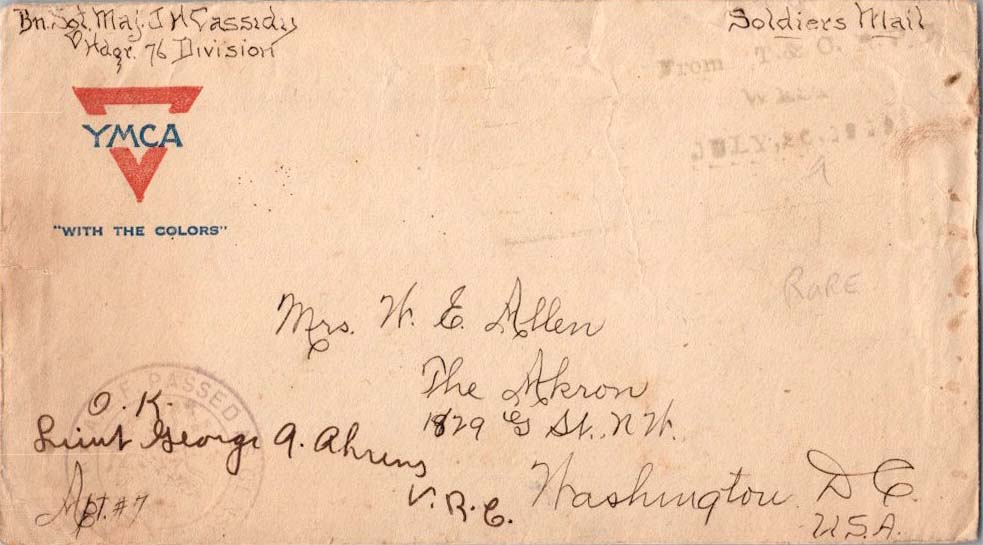 Bn. Sgt. Maj. J H Cassidy
Hdqr. 76 Division
Soldiers Mail
From T. & O.
JULY
YMCA
"WITH THE COLORS"
RARE
Mrs. W. E. Allen
The Akron
1829 G St., N.W.
Washington D C.
U.S.A.
PASSED
O. K.
Lieut George A. Ahrens
V.R.C.
Apt. #7